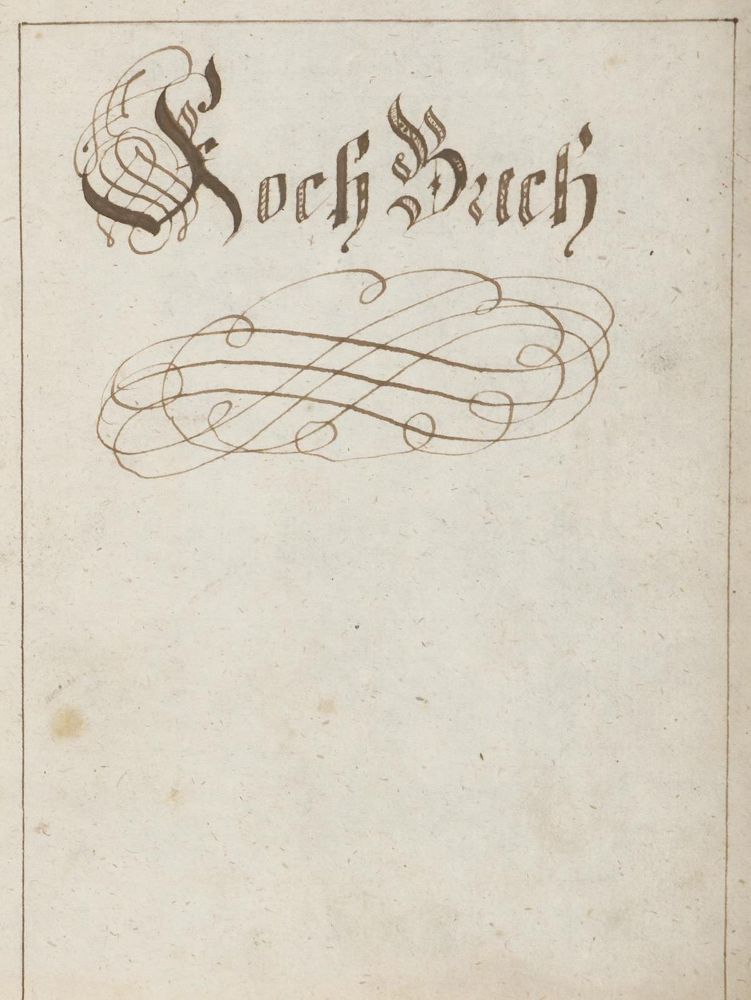 Koch Buch